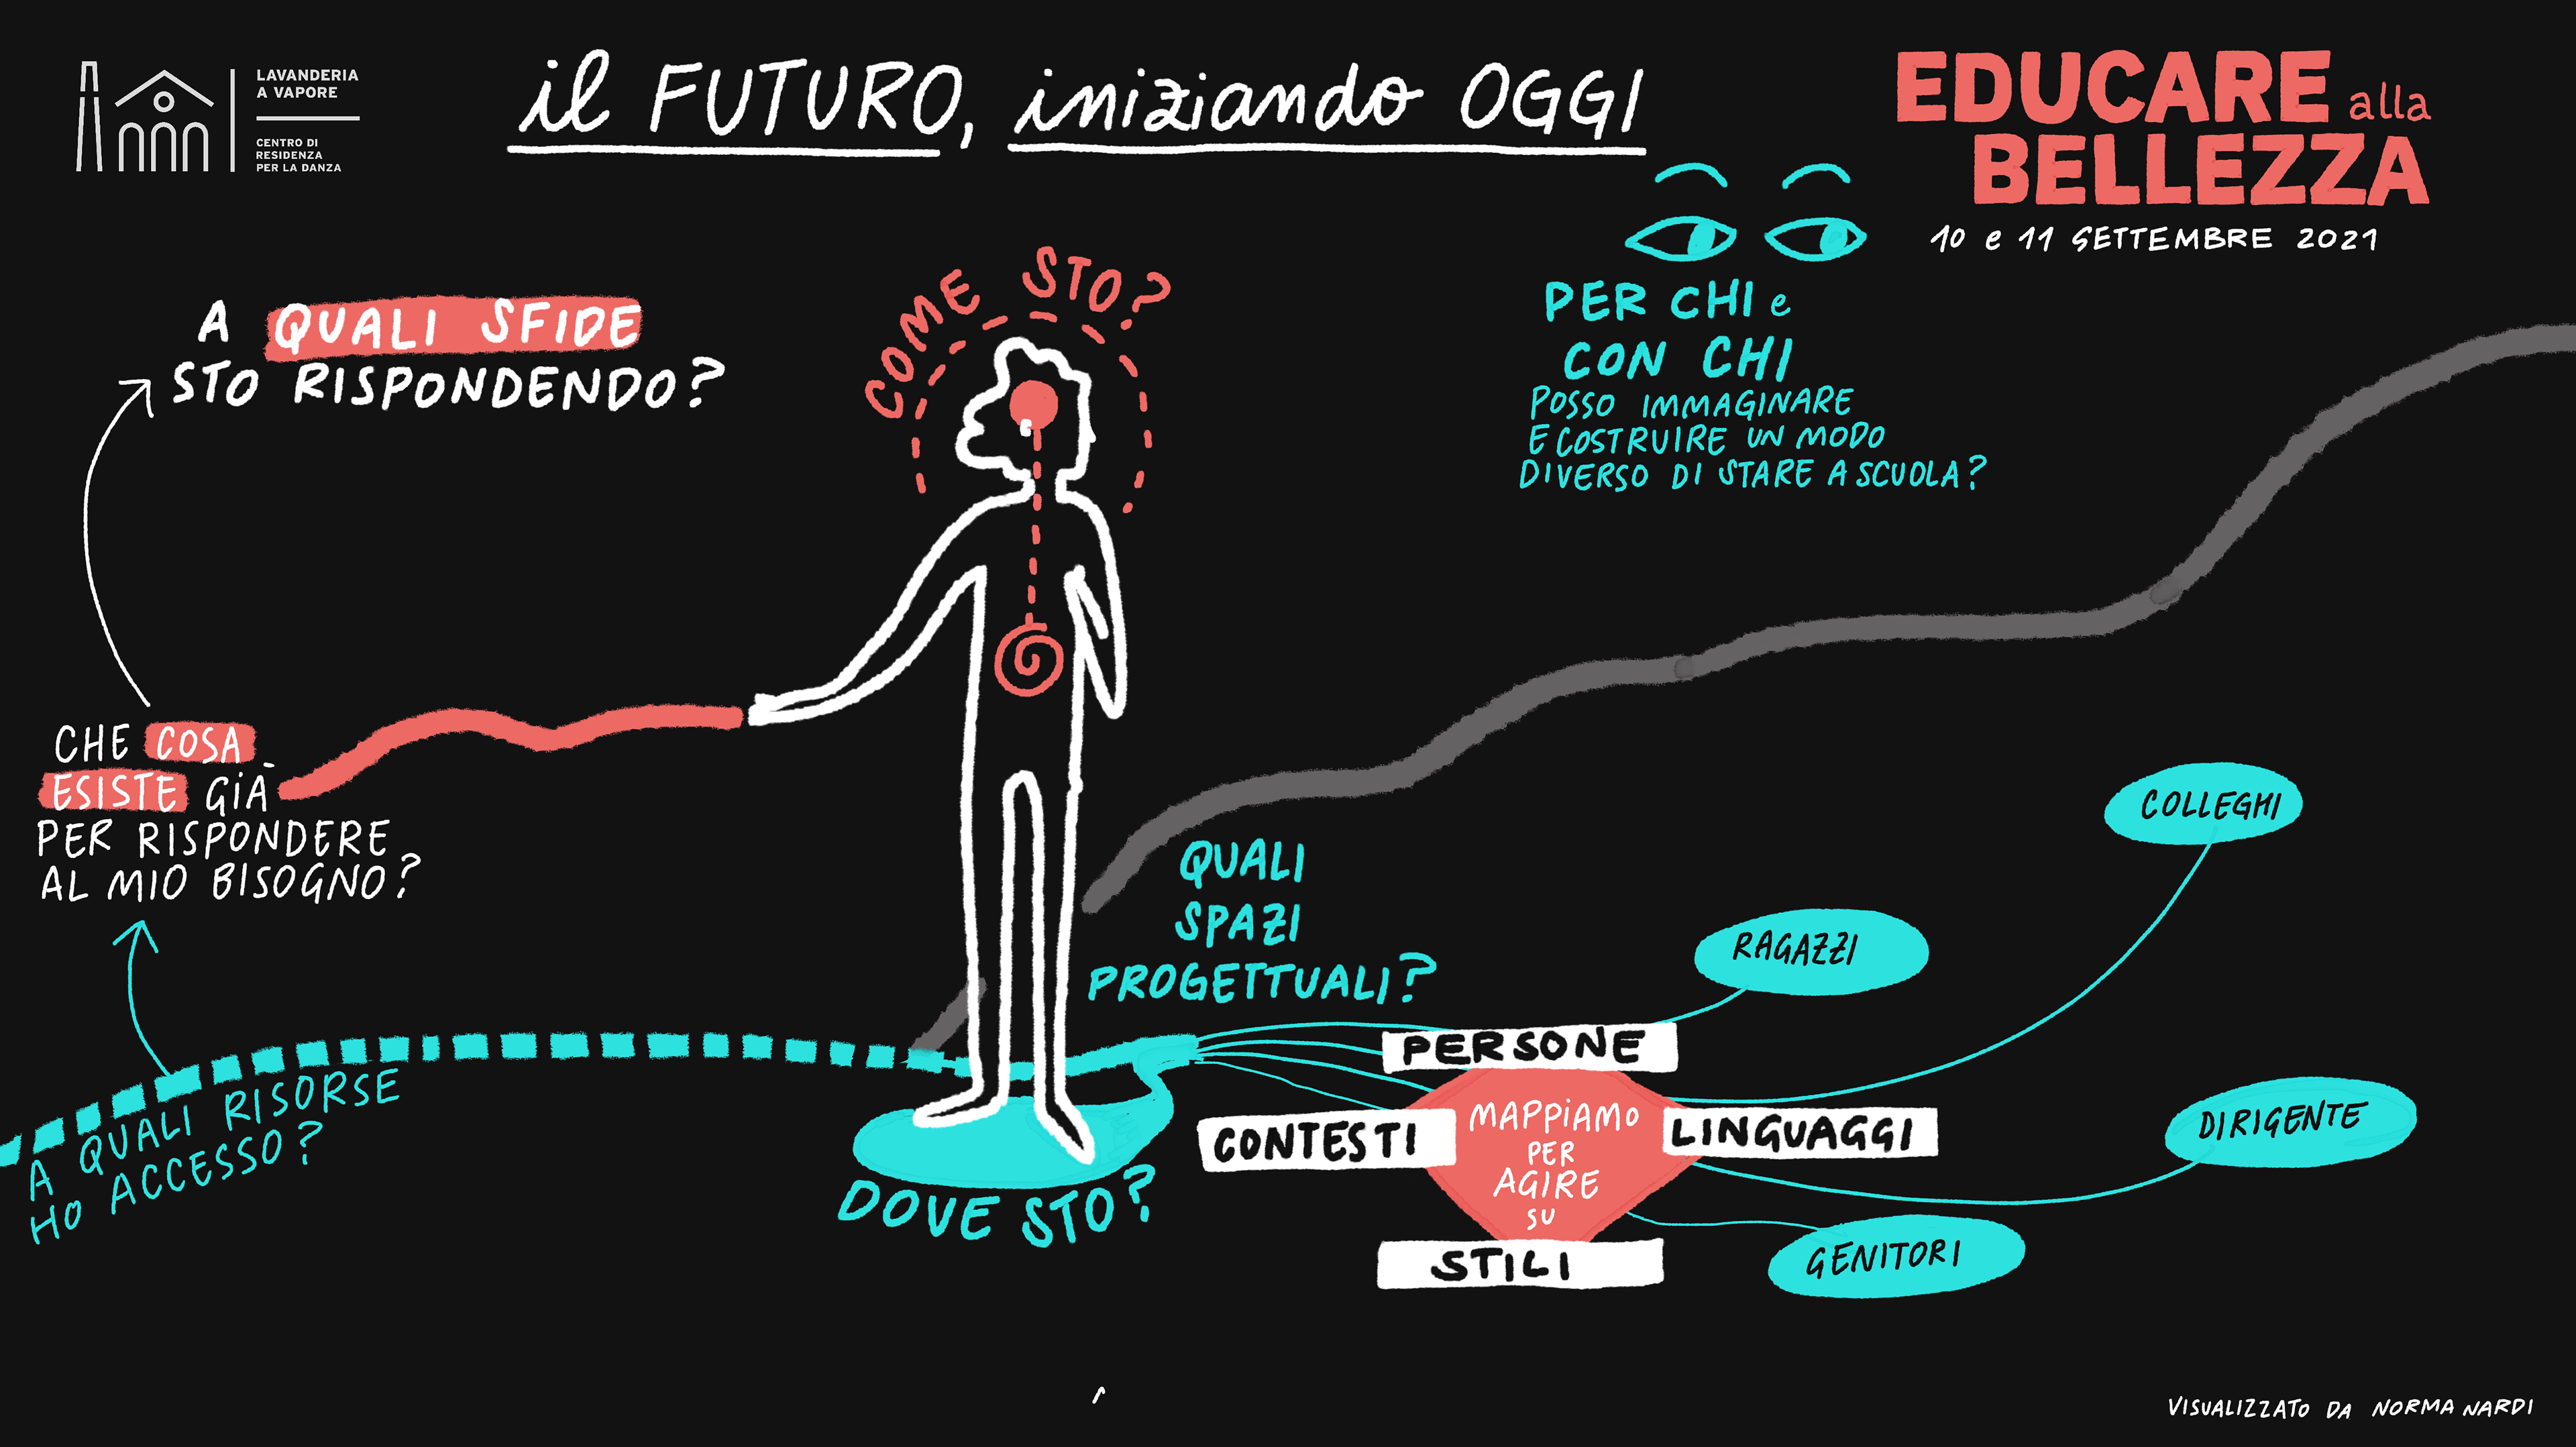 LAVANDERIA
A VAPORE
CENTRO DI
RESIDENZA
PER LA DANZA
il FUTURO, iniziando OGGI
EDUCARE alla
BELLEZZA
10 e 11 SETTEMBRE 2021
A QUALI SFIDE
STO RISPONDENDO?
COME STO?
PER CHI e
CON CHI
POSSO IMMAGINARE
E COSTRUIRE UN MODO
DIVERSO DI STARE A SCUOLA?
CHE COSA
ESISTE GIÀ
PER RISPONDERE
AL MIO BISOGNO?
QUALI
SPAZI
PROGETTUALI?
COLLEGHI
RAGAZZI
A QUALI RISORSE
HO ACCESSO?
DOVE STO?
PERSONE
CONTESTI
MAPPIAMO
PER
AGIRE
SU
LINGUAGGI
STILI
DIRIGENTE
GENITORI
VISUALIZZATO DA NORMA NARDI